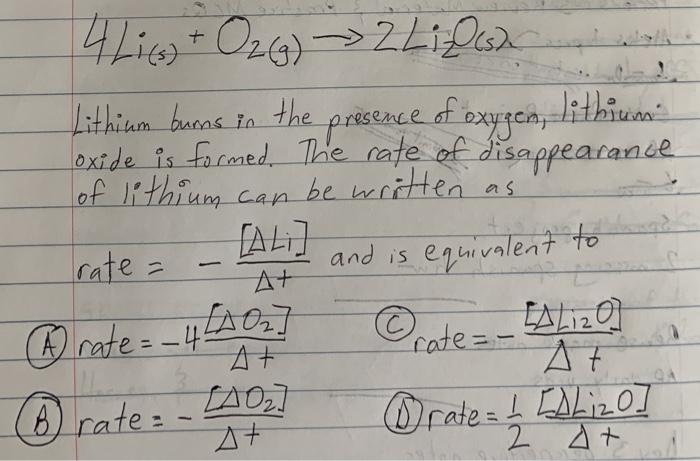 4Li(s) + O2(g) → 2Li2O(s)
Lithium burns in the presence of oxygen, lithium
oxide is formed. The rate of disappearance
of lithium can be written as
rate = - [ΔLi]/Δt and is equivalent to
(A) rate = -4 [ΔO2]/Δt
(B) rate = - [ΔO2]/Δt
(C) rate = - [ΔLi2O]/Δt
(D) rate = 1/2 [ΔLi2O]/Δt